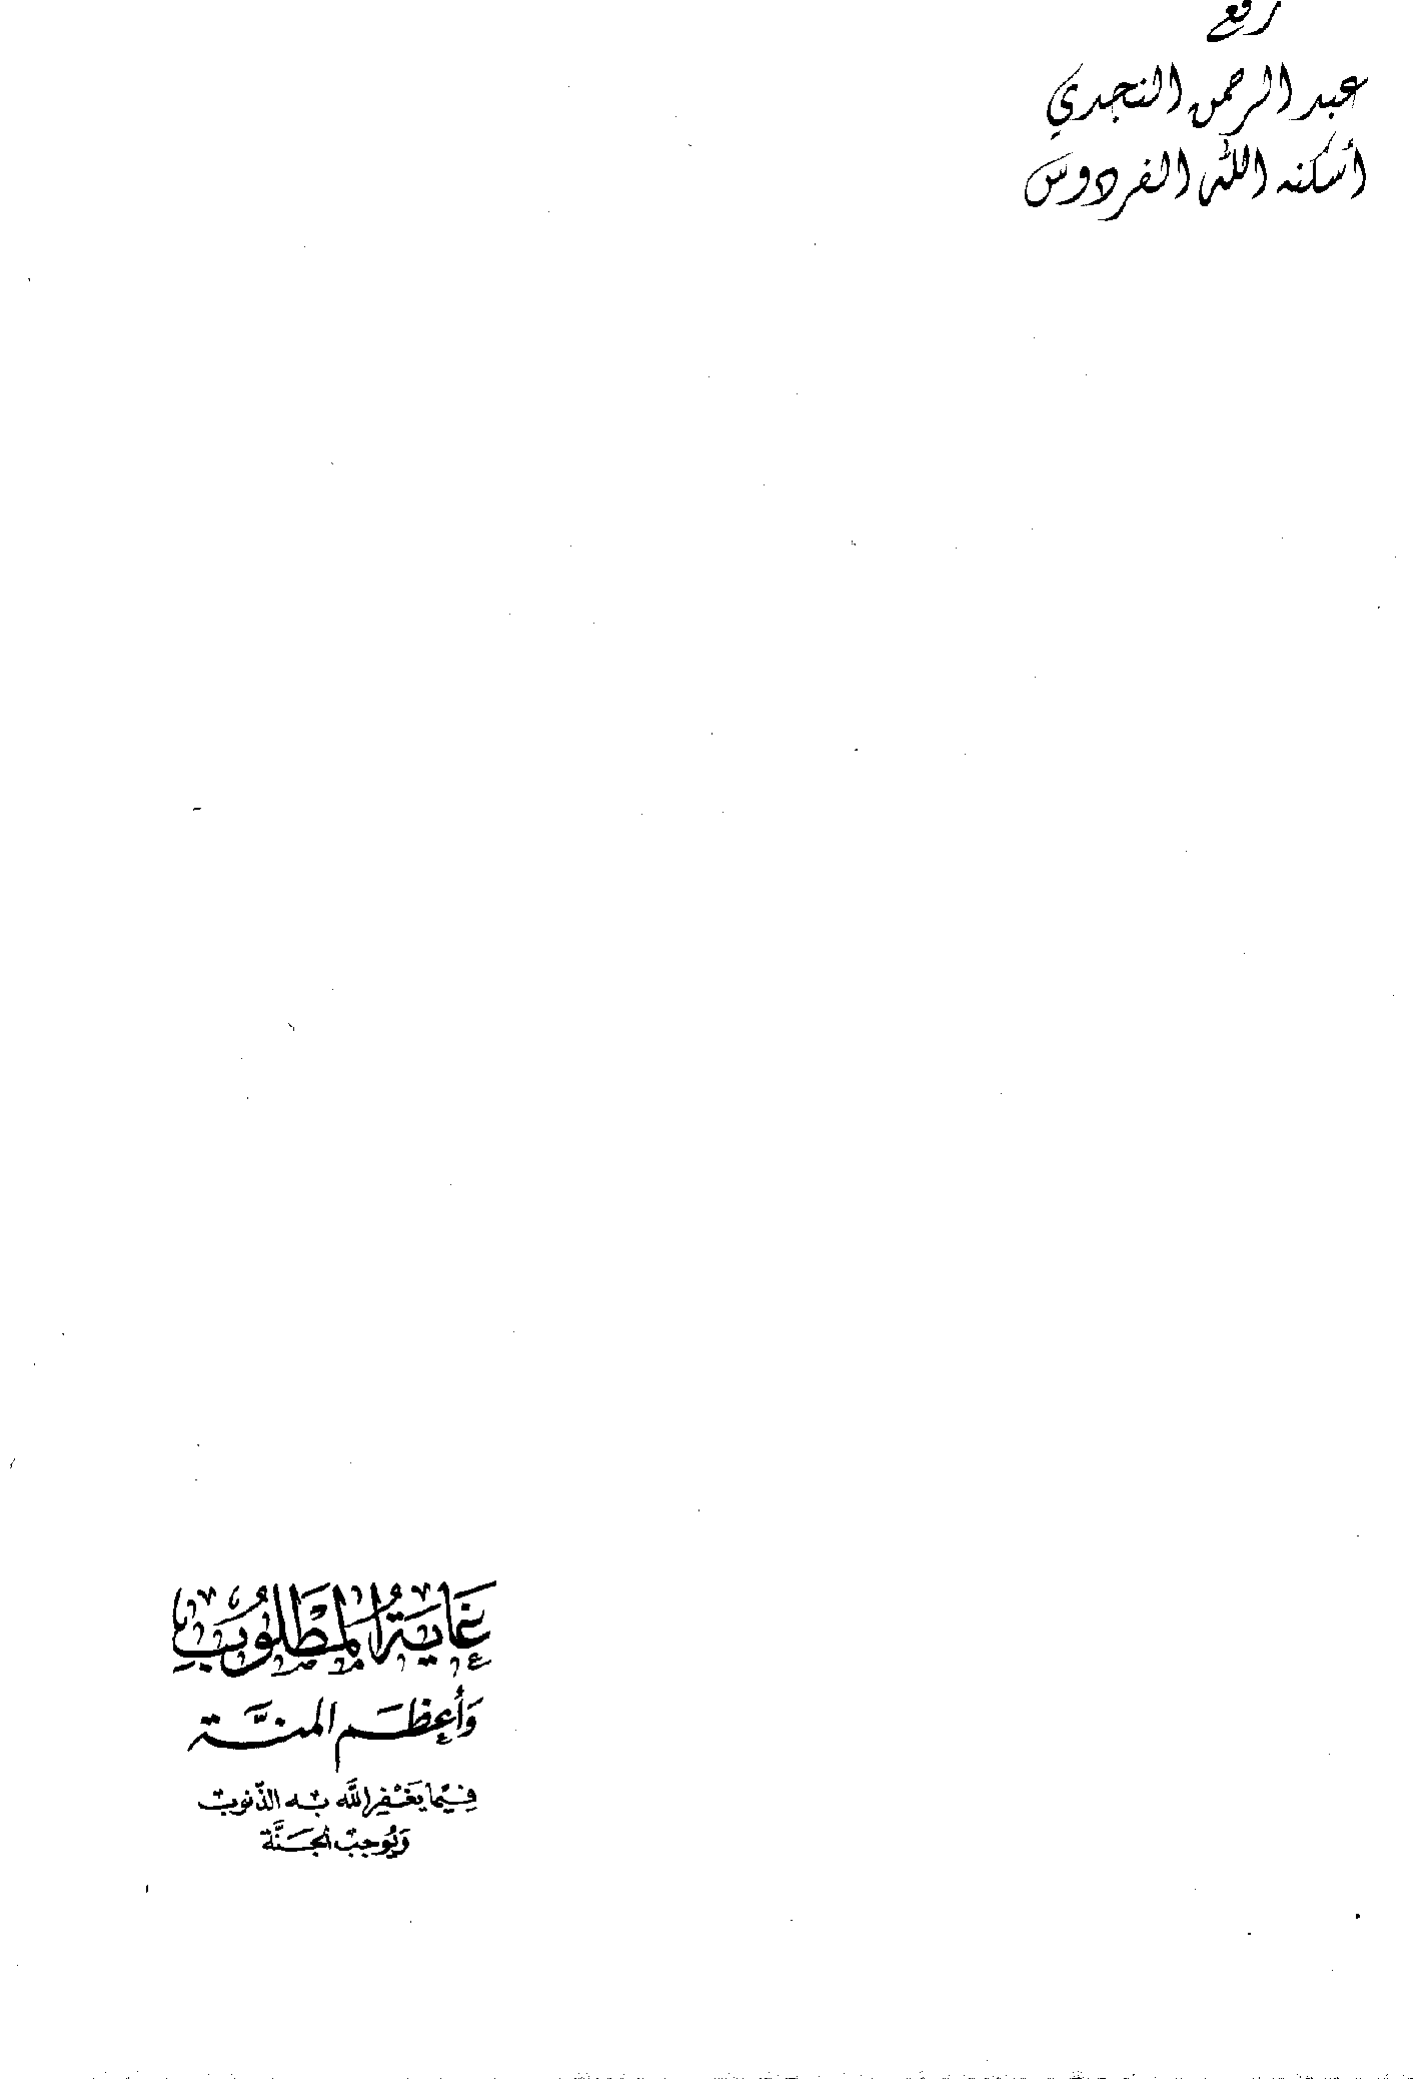 رفع
عبد الرحمن النجدي
أسكنه الله الفردوس
غَايَةُ المَطْلُوبِ
وَأَعظَم المنَّة
فِيمَا يَغْفِر اللَّه بِه الذّنوبَ
وَيُوجِبُ الجَنَّة